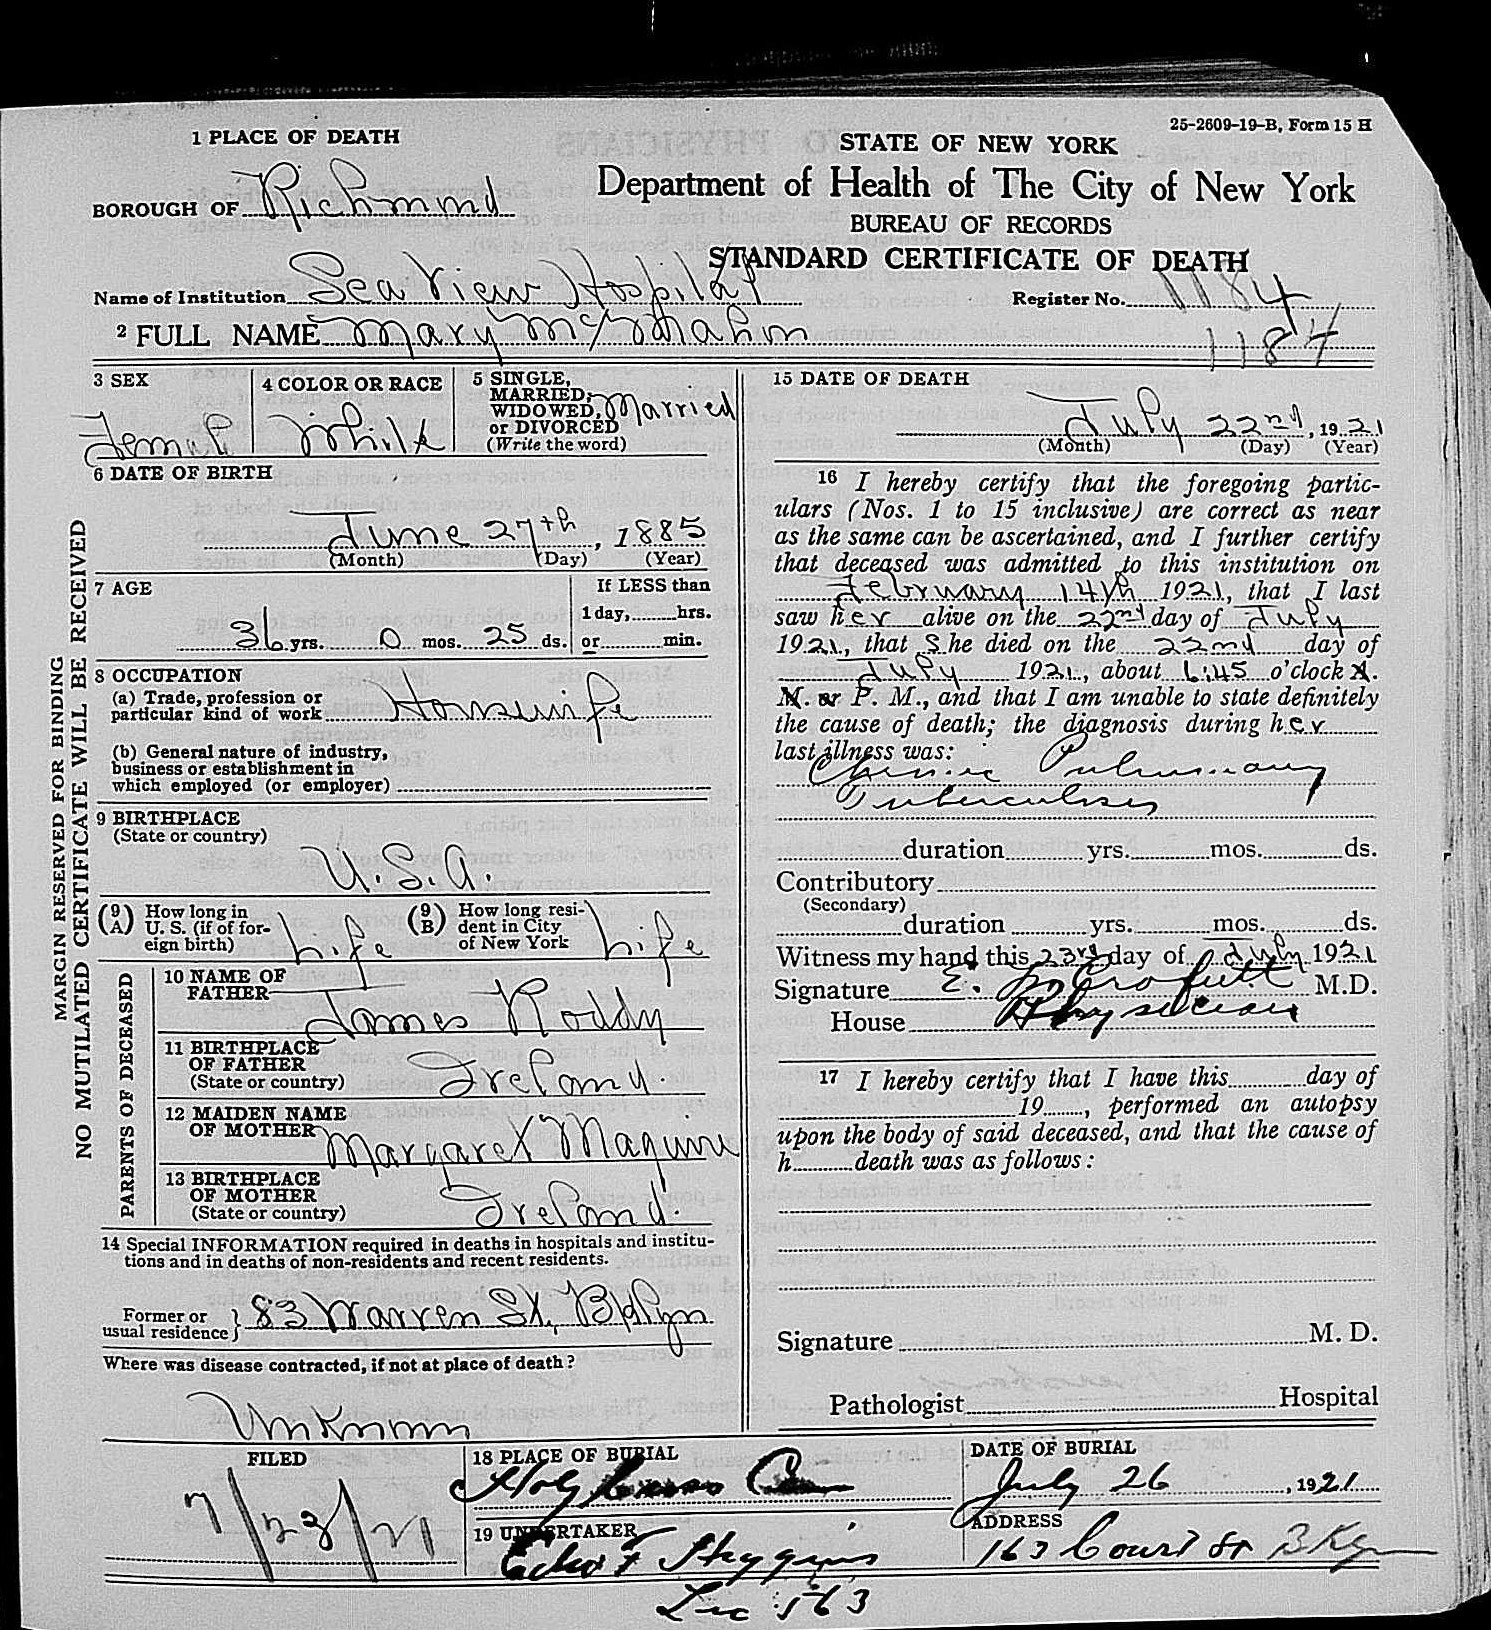 25-2609-19-B, Form 15 H
1 PLACE OF DEATH
STATE OF NEW YORK
Department of Health of The City of New York
BOROUGH OF Richmond
BUREAU OF RECORDS
STANDARD CERTIFICATE OF DEATH
Name of Institution Sea View Hospital
Register No. 1184
2 FULL NAME Mary McMahon
1184
3 SEX
Female
4 COLOR OR RACE
White
5 SINGLE, MARRIED, WIDOWED, or DIVORCED (Write the word)
Married
6 DATE OF BIRTH
June 27th, 1885
(Month) (Day) (Year)
7 AGE
If LESS than
1 day, hrs.
36 yrs. 0 mos. 25 ds. or min.
8 OCCUPATION
(a) Trade, profession or
particular kind of work Housewife
(b) General nature of industry,
business or establishment in
which employed (or employer)
9 BIRTHPLACE
(State or country)
U.S.A.
(9 A) How long in U. S. (if of foreign birth) Life
(9 B) How long resident in City of New York Life
PARENTS OF DECEASED
10 NAME OF
FATHER
James Roddy
11 BIRTHPLACE
OF FATHER
(State or country) Ireland.
12 MAIDEN NAME
OF MOTHER Margaret Maguire
13 BIRTHPLACE
OF MOTHER
(State or country) Ireland.
14 Special INFORMATION required in deaths in hospitals and institu-
tions and in deaths of non-residents and recent residents.
Former or
usual residence } 83 Warren St, Bklyn
Where was disease contracted, if not at place of death?
Unknown
MARGIN RESERVED FOR BINDING
NO MUTILATED CERTIFICATE WILL BE RECEIVED
15 DATE OF DEATH
July 22nd, 1921
(Month) (Day) (Year)
16 I hereby certify that the foregoing partic-
ulars (Nos. 1 to 15 inclusive) are correct as near
as the same can be ascertained, and I further certify
that deceased was admitted to this institution on
February 14th 1921, that I last
saw her alive on the 22nd day of July
1921, that She died on the 22nd day of
July 1921, about 6:45 o'clock A.
M. or P. M., and that I am unable to state definitely
the cause of death; the diagnosis during her
last illness was:
Chronic Pulmonary
Tuberculosis
duration yrs. mos. ds.
Contributory
(Secondary)
duration yrs. mos. ds.
Witness my hand this 23rd day of July 1921
Signature E. M.D.
House Physician
17 I hereby certify that I have this day of
19 , performed an autopsy
upon the body of said deceased, and that the cause of
h death was as follows:
Signature M. D.
Pathologist Hospital
FILED
7/23/21
18 PLACE OF BURIAL
Holy Cross Cem
DATE OF BURIAL
July 26, 1921
19 UNDERTAKER
Edw F Higgins
Lic 563
ADDRESS
163 Court St Bklyn